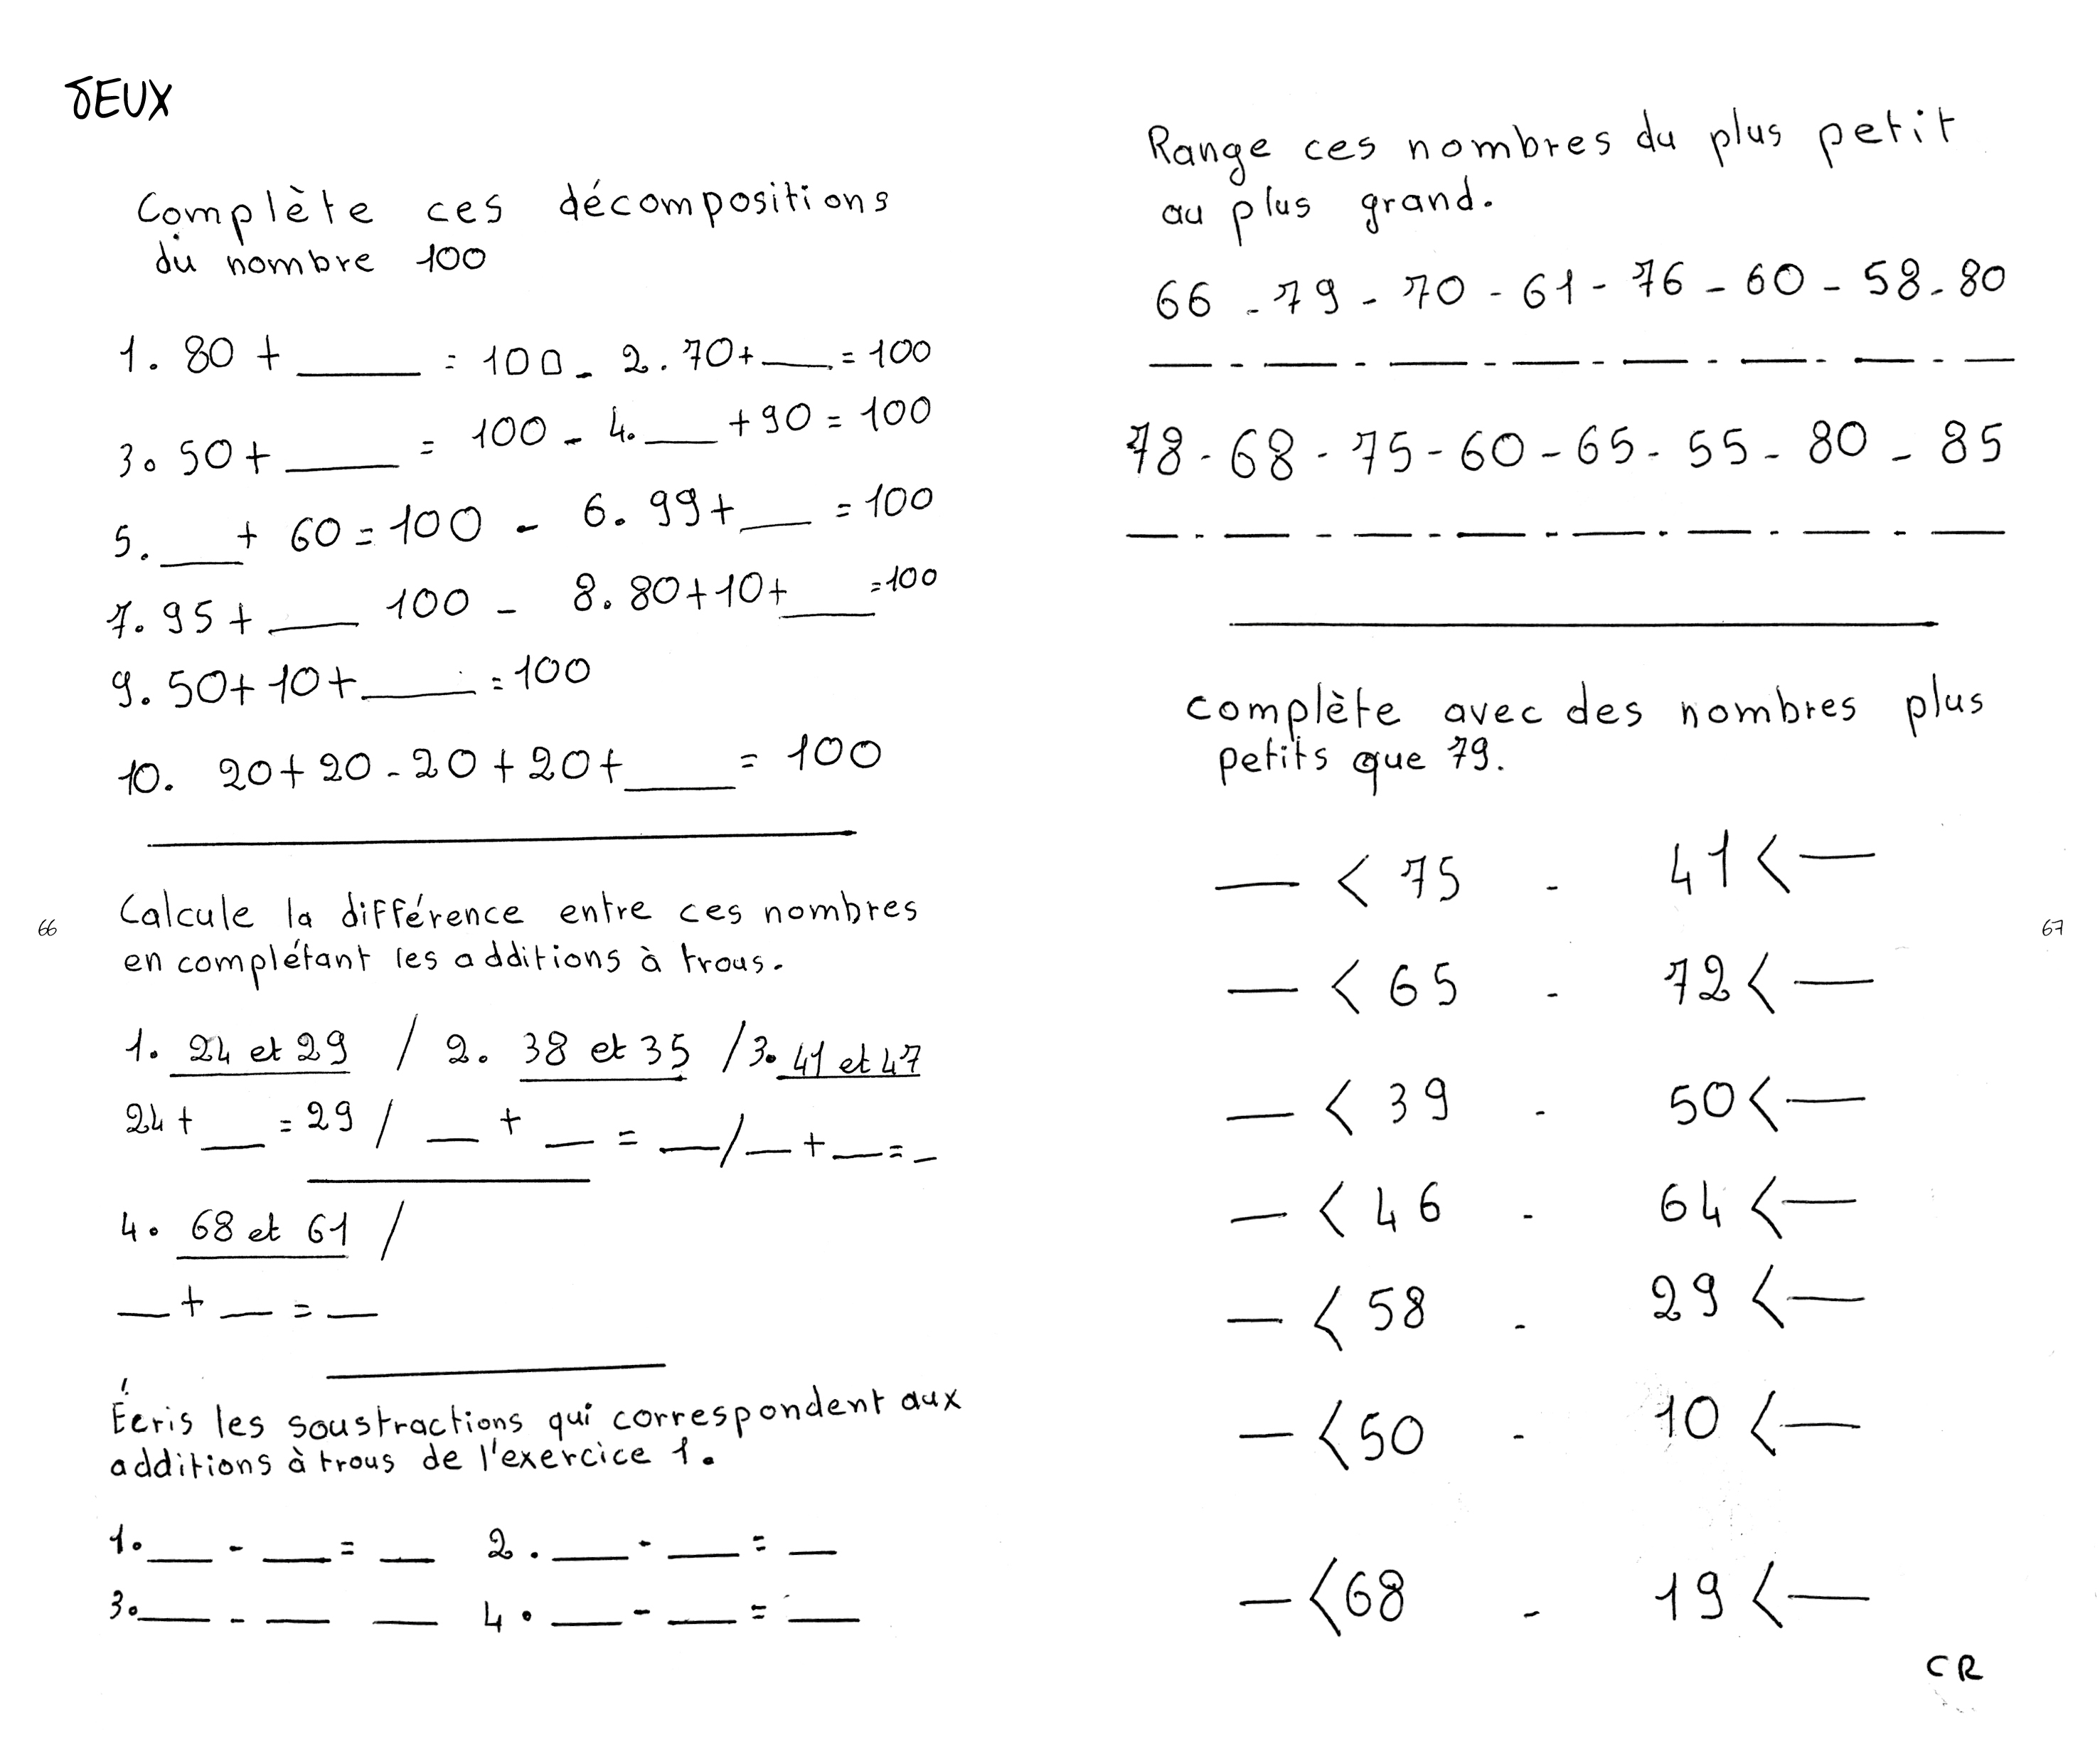 DEUX
Complète ces décompositions
du nombre 100
1. 80 + ____ = 100 - 2. 70+___ = 100
3. 50 + ____ = 100 - 4. ___ +90 = 100
5. ___ + 60 = 100 - 6. 99+___ = 100
7. 95 + ___ 100 - 8. 80+10+___ =100
9. 50+10+____ = 100
10. 20+20-20+20+____ = 100
Calcule la différence entre ces nombres
en complétant les additions à trous.
1. 24 et 29 / 2. 38 et 35 /3. 41 et 47
24+ __ = 29 / __ + __ = __/__+__=_
4. 68 et 61 /
__ + __ = __
Écris les soustractions qui correspondent aux
additions à trous de l'exercice 1.
1. __ - __ = __ 2. __ - __ = __
3. __ - __ __ 4. __ - __ = __
66
Range ces nombres du plus petit
au plus grand.
66 - 79 - 70 - 61 - 76 - 60 - 58 - 80
__ - __ - __ - __ - __ - __ - __ - __
78 - 68 - 75 - 60 - 65 - 55 - 80 - 85
__ - __ - __ - __ - __ - __ - __ - __
complète avec des nombres plus
petits que 79.
__ < 75 - 41 < __
__ < 65 - 72 < __
__ < 39 - 50 < __
__ < 46 - 64 < __
__ < 58 - 29 < __
__ < 50 - 10 < __
__ < 68 - 19 < __
CR
67